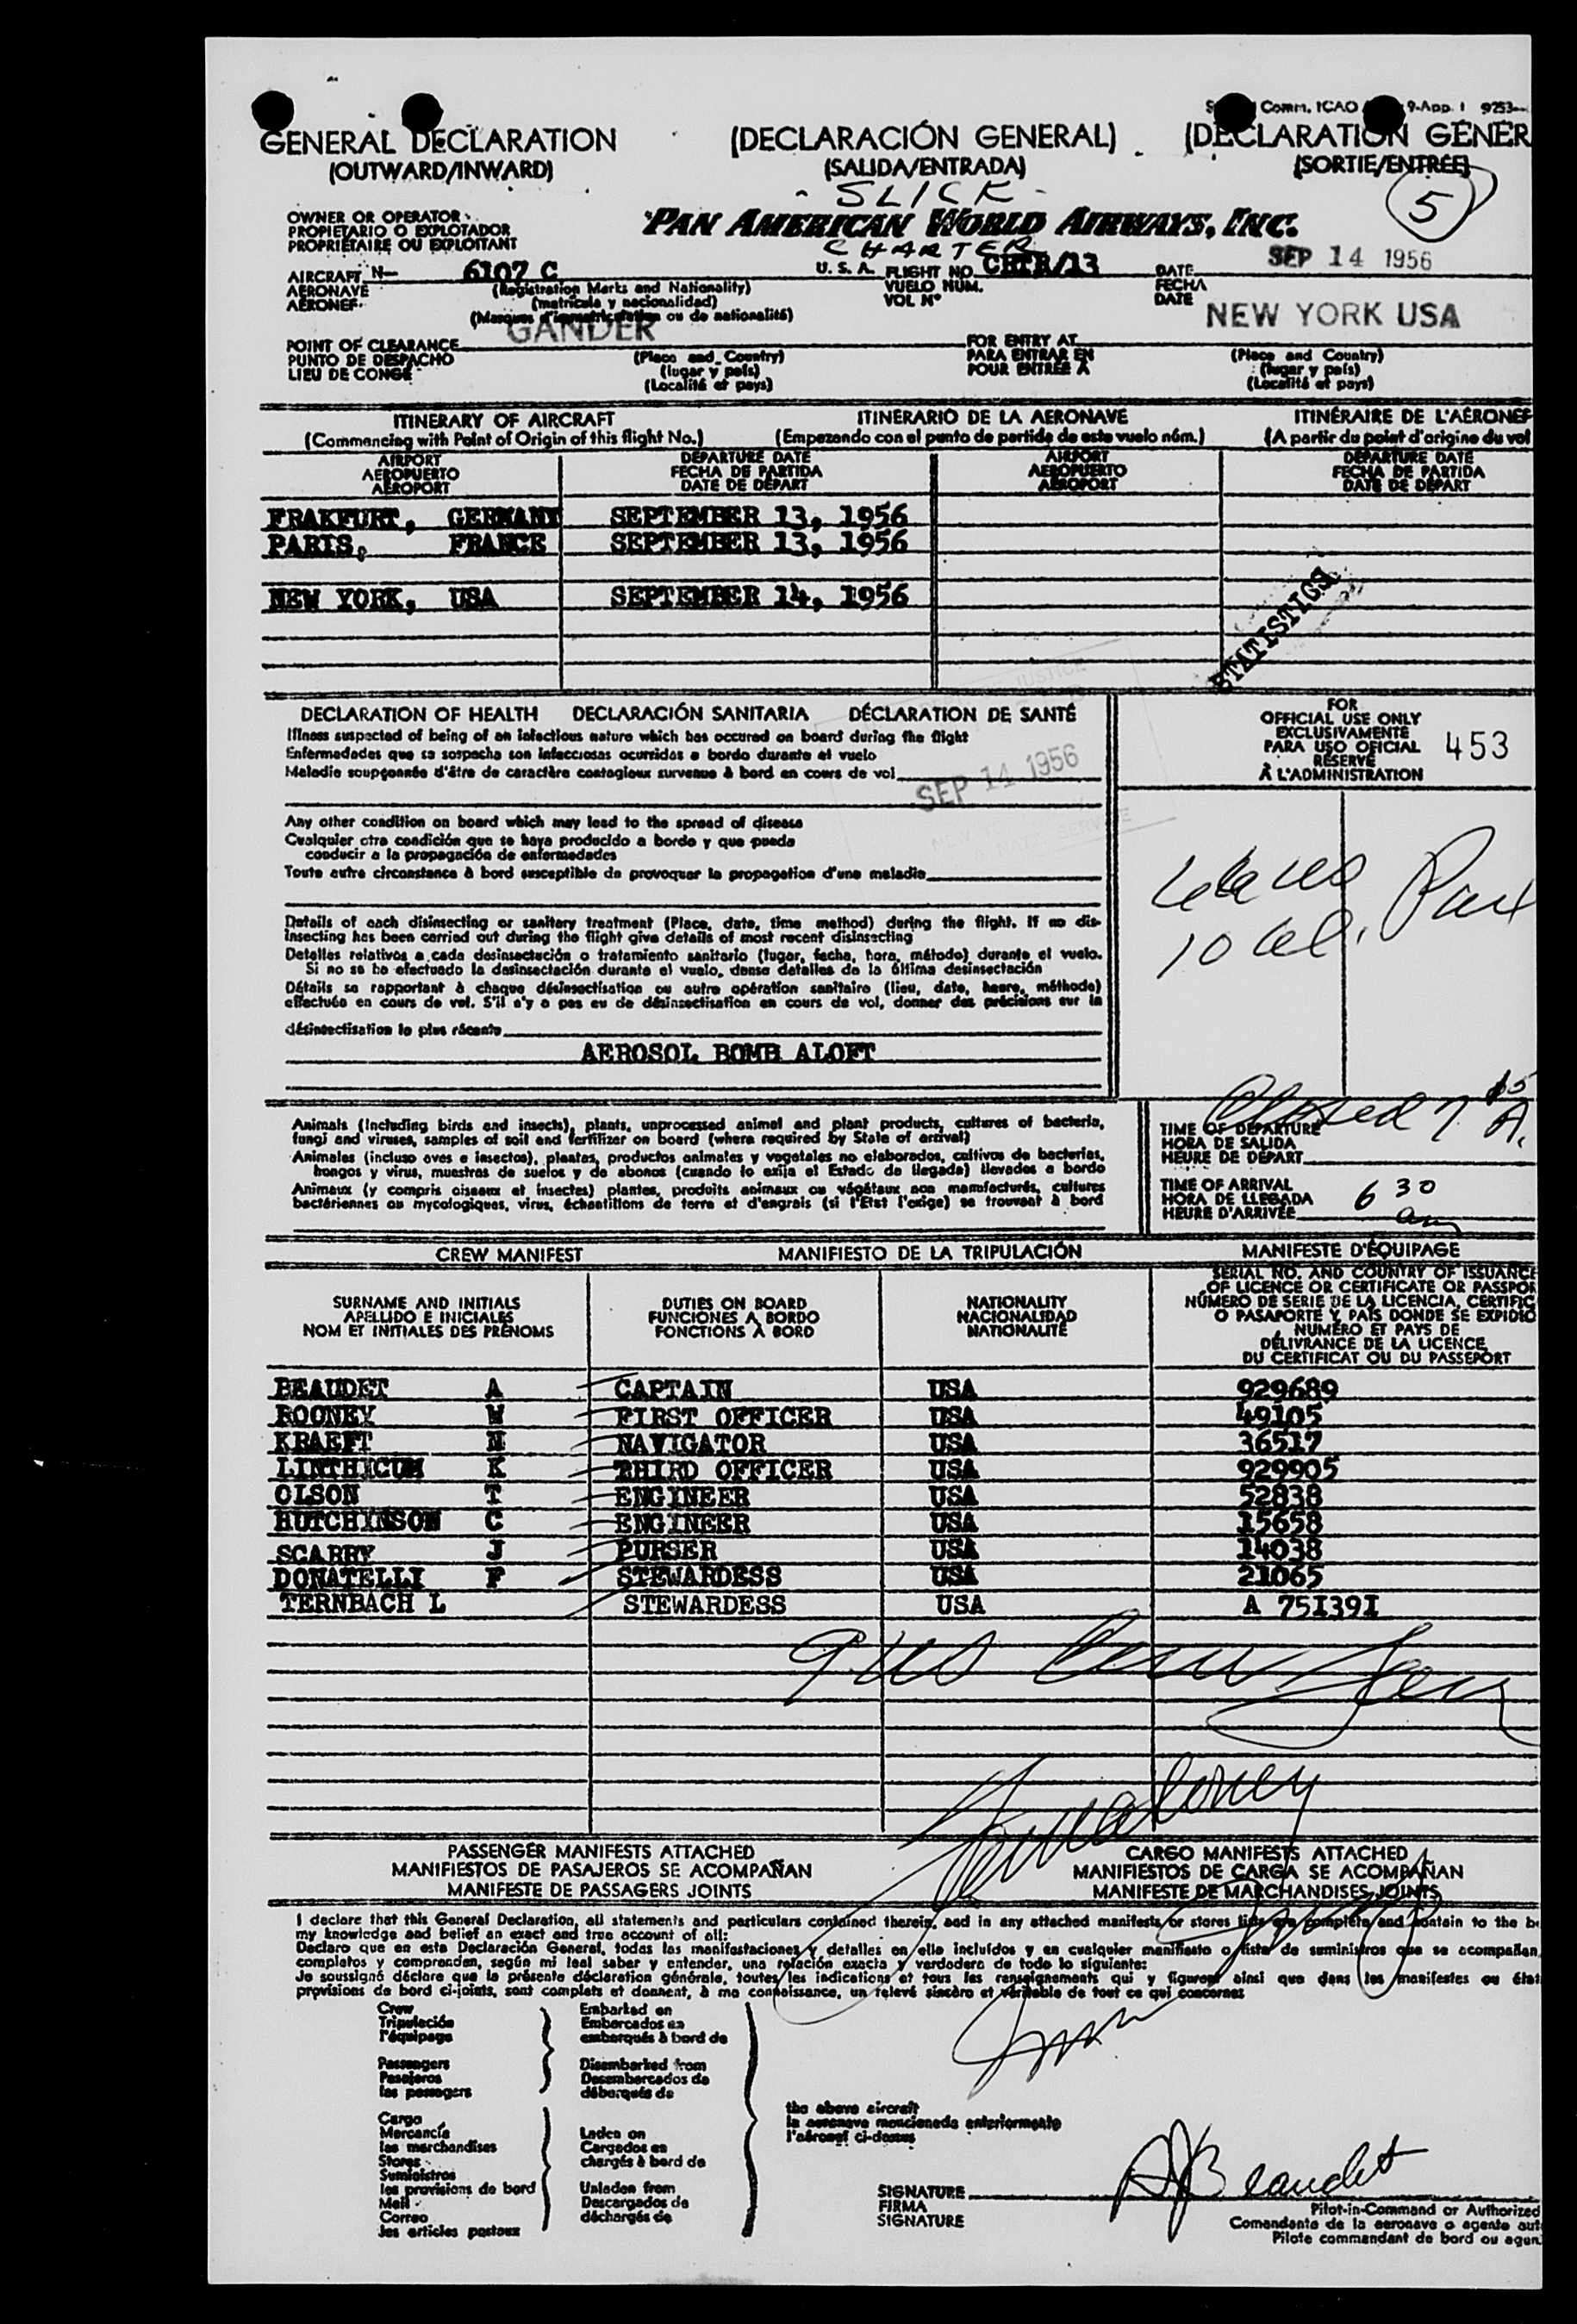 Comm. ICAO 9-App. 1 9253-
GENERAL DECLARATION (DECLARACIÓN GENERAL) (DECLARATION GÉNÉR
(OUTWARD/INWARD) (SALIDA/ENTRADA) (SORTIE/ENTRÉE)
- SLICK -
5
OWNER OR OPERATOR
PROPIETARIO O EXPLOTADOR
PROPRIÉTAIRE OU EXPLOITANT
PAN AMERICAN WORLD AIRWAYS, INC.
CHARTER
AIRCRAFT N- 6107 C U. S. A. FLIGHT NO. CHTR/13 DATE SEP 14 1956
AERONAVE (Registration Marks and Nationality) VUELO NÚM. FECHA
AÉRONEF (matrícula y nacionalidad) VOL Nº DATE
(Marques d'immatriculation ou de nationalité)
GANDER NEW YORK USA
POINT OF CLEARANCE (Place and Country) FOR ENTRY AT (Place and Country)
PUNTO DE DESPACHO (lugar y país) PARA ENTRAR EN (lugar y país)
LIEU DE CONGÉ (Localité et pays) POUR ENTRÉE À (Localité et pays)
ITINERARY OF AIRCRAFT ITINERARIO DE LA AERONAVE ITINÉRAIRE DE L'AÉRONEF
(Commencing with Point of Origin of this flight No.) (Empezando con el punto de partida de este vuelo núm.) (A partir du point d'origine du vol
AIRPORT DEPARTURE DATE AIRPORT DEPARTURE DATE
AEROPUERTO FECHA DE PARTIDA AEROPUERTO FECHA DE PARTIDA
AÉROPORT DATE DE DÉPART AÉROPORT DATE DE DÉPART
FRAKFURT, GERMANY SEPTEMBER 13, 1956
PARIS, FRANCE SEPTEMBER 13, 1956
NEW YORK, USA SEPTEMBER 14, 1956
STATISTICS
DECLARATION OF HEALTH DECLARACIÓN SANITARIA DÉCLARATION DE SANTÉ
Illness suspected of being of an infectious nature which has occured on board during the flight
Enfermedades que se sospecha son infecciosas ocurridas a bordo durante el vuelo
Maladie soupçonnée d'être de caractère contagieux survenue à bord en cours de vol
SEP 14 1956
FOR
OFFICIAL USE ONLY
EXCLUSIVAMENTE
PARA USO OFICIAL
RÉSERVÉ
À L'ADMINISTRATION
453
Any other condition on board which may lead to the spread of disease
Cualquier otra condición que se haya producido a bordo y que pueda
conducir a la propagación de enfermedades
Toute autre circonstance à bord susceptible de provoquer la propagation d'une maladie
Details of each disinsecting or sanitary treatment (Place, date, time method) during the flight. If no dis-
insecting has been carried out during the flight give details of most recent disinsecting
Detalles relativos a cada desinsectación o tratamiento sanitario (lugar, fecha, hora, método) durante el vuelo.
Si no se ha efectuado la desinsectación durante el vuelo, dense detalles de la última desinsectación
Détails se rapportant à chaque désinsectisation ou autre opération sanitaire (lieu, date, heure, méthode)
effectuée en cours de vol. S'il n'y a pas eu de désinsectisation en cours de vol, donner des précisions sur la
désinsectisation la plus récente
AEROSOL BOMB ALOFT
Animals (including birds and insects), plants, unprocessed animal and plant products, cultures of bacteria,
fungi and viruses, samples of soil and fertilizer on board (where required by State of arrival)
Animales (incluso aves e insectos), plantas, productos animales y vegetales no elaborados, cultivos de bacterias,
hongos y virus, muestras de suelos y de abonos (cuando lo exija el Estado de llegada) llevados a bordo
Animaux (y compris oiseaux et insectes) plantes, produits animaux ou végétaux non manufacturés, cultures
bactériennes ou mycologiques, virus, échantillons de terre et d'engrais (si l'État l'exige) se trouvant à bord
Closed 7 15 A.
TIME OF DEPARTURE
HORA DE SALIDA
HEURE DE DÉPART
TIME OF ARRIVAL
HORA DE LLEGADA
HEURE D'ARRIVÉE
6 30
am
CREW MANIFEST MANIFIESTO DE LA TRIPULACIÓN MANIFESTE D'ÉQUIPAGE
SURNAME AND INITIALS
APELLIDO E INICIALES
NOM ET INITIALES DES PRÉNOMS
DUTIES ON BOARD
FUNCIONES A BORDO
FONCTIONS À BORD
NATIONALITY
NACIONALIDAD
NATIONALITÉ
SERIAL NO. AND COUNTRY OF ISSUANCE
OF LICENCE OR CERTIFICATE OR PASSPOR
NÚMERO DE SERIE DE LA LICENCIA, CERTIFIC
O PASAPORTE Y PAÍS DONDE SE EXPIDIÓ
NUMÉRO ET PAYS DE
DÉLIVRANCE DE LA LICENCE,
DU CERTIFICAT OU DU PASSEPORT
BEAUDET A CAPTAIN USA 929689
ROONEY W FIRST OFFICER USA 49105
KRAEFT N NAVIGATOR USA 36517
LINTHICUM K THIRD OFFICER USA 929905
OLSON T ENGINEER USA 52838
HUTCHINSON C ENGINEER USA 15658
SCARRY J PURSER USA 14038
DONATELLI F STEWARDESS USA 21065
TERNBACH L STEWARDESS USA A 75I39I
9 US
PASSENGER MANIFESTS ATTACHED CARGO MANIFESTS ATTACHED
MANIFIESTOS DE PASAJEROS SE ACOMPAÑAN MANIFIESTOS DE CARGA SE ACOMPAÑAN
MANIFESTE DE PASSAGERS JOINTS MANIFESTE DE MARCHANDISES JOINTS
I declare that this General Declaration, all statements and particulars contained therein, and in any attached manifests or stores lists are complete and contain to the be
my knowledge and belief an exact and true account of all:
Declaro que en esta Declaración General, todas las manifestaciones y detalles en ella incluídos y en cualquier manifiesto o lista de suministros que se acompañan,
completos y comprenden, según mi leal saber y entender, una relación exacta y verdadera de todo lo siguiente:
Je soussigné déclare que la présente déclaration générale, toutes les indications et tous les renseignements qui y figurent ainsi que dans les manifestes ou état
provisions de bord ci-joints, sont complets et donnent, à ma connaissance, un relevé sincère et véritable de tout ce qui concerne:
Crew
Tripulación
l'équipage
Passengers
Pasajeros
les passagers
Embarked on
Embarcados en
embarqués à bord de
Disembarked from
Desembarcados de
débarqués de
Cargo
Mercancía
les marchandises
Stores
Suministros
les provisions de bord
Mail
Correo
les articles postaux
Laden on
Cargados en
chargés à bord de
Unladen from
Descargados de
déchargés de
the above aircraft
la aeronave mencionada anteriormente
l'aéronef ci-dessus
SIGNATURE
FIRMA
SIGNATURE
A J Beaudet
Pilot-in-Command or Authorized
Comandante de la aeronave o agente aut
Pilote commandant de bord ou agen